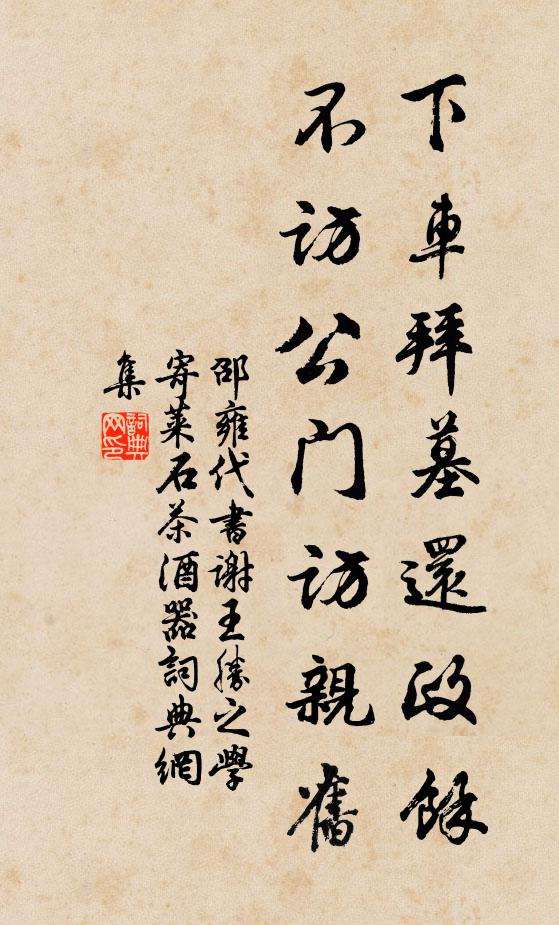 下車拜墓還政餘
不訪公門訪親舊
邵雍代書謝王勝之學
寄萊石茶酒器詞典網
集
詞典
网印